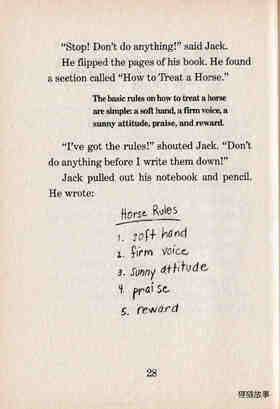 "Stop! Don't do anything!" said Jack.
He flipped the pages of his book. He found
a section called "How to Treat a Horse."
The basic rules on how to treat a horse
are simple: a soft hand, a firm voice, a
sunny attitude, praise, and reward.
"I've got the rules!" shouted Jack. "Don't
do anything before I write them down!"
Jack pulled out his notebook and pencil.
He wrote:
Horse Rules
1. soft hand
2. firm voice
3. sunny attitude
4. praise
5. reward
28
狸猫故事